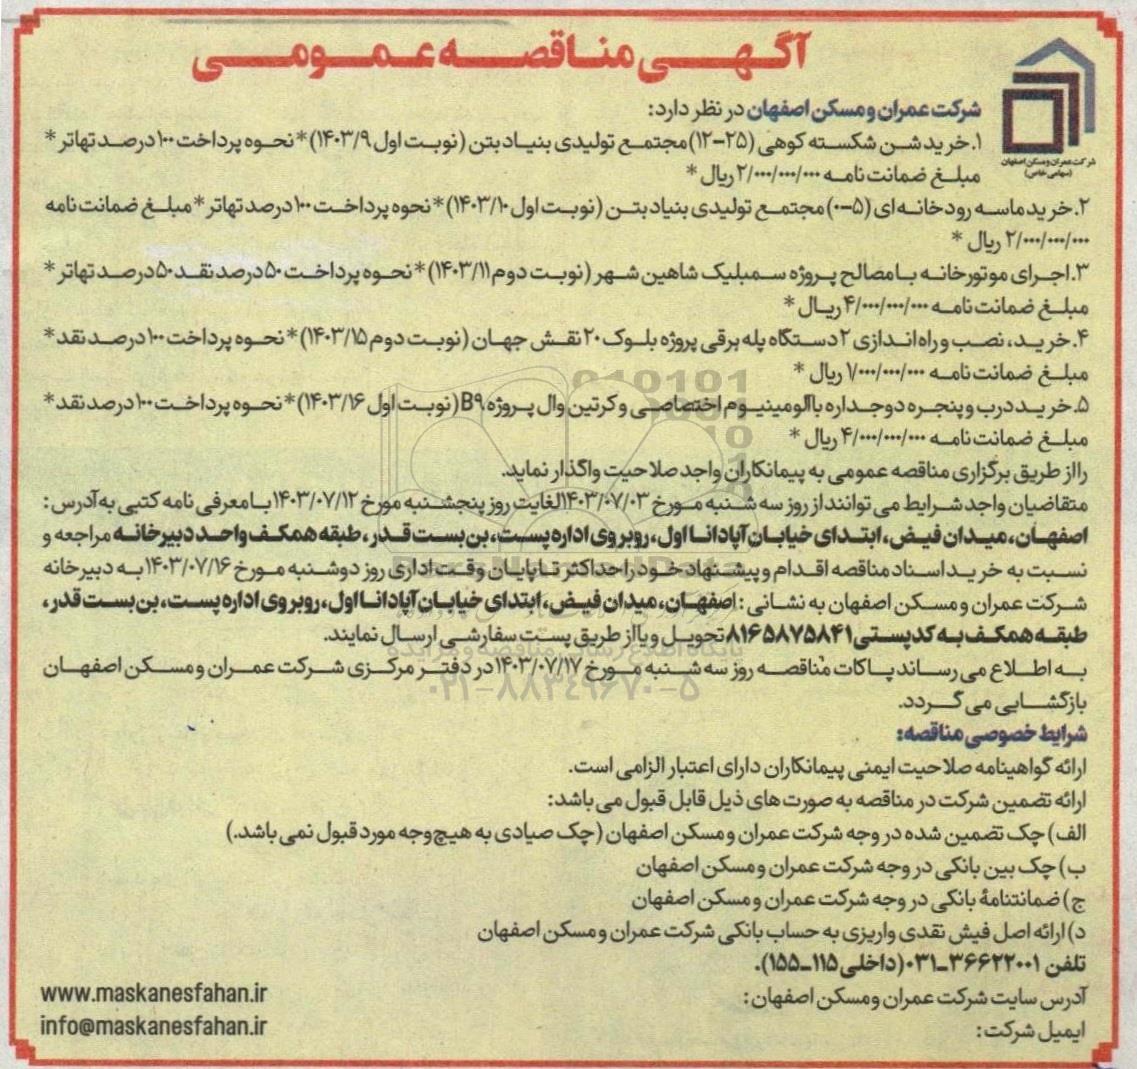 آگهی مناقصه عمومی
شرکت عمران و مسکن اصفهان
(سهامی خاص)
شرکت عمران و مسکن اصفهان در نظر دارد:
۱. خرید شن شکسته کوهی (۲۵–۱۲) مجتمع تولیدی بنیاد بتن (نوبت اول ۱۴۰۳/۹) * نحوه پرداخت ۱۰۰ درصد تهاتر *
مبلغ ضمانت نامه ۲/۰۰۰/۰۰۰/۰۰۰ ریال *
۲. خرید ماسه رودخانه ای (۵–۰) مجتمع تولیدی بنیاد بتن (نوبت اول ۱۴۰۳/۱۰) * نحوه پرداخت ۱۰۰ درصد تهاتر * مبلغ ضمانت نامه
۲/۰۰۰/۰۰۰/۰۰۰ ریال *
۳. اجرای موتورخانه با مصالح پروژه سمبلیک شاهین شهر (نوبت دوم ۱۴۰۳/۱۱) * نحوه پرداخت ۵۰ درصد نقد ۵۰ درصد تهاتر *
مبلغ ضمانت نامه ۴/۰۰۰/۰۰۰/۰۰۰ ریال *
۴. خرید، نصب و راه اندازی ۲ دستگاه پله برقی پروژه بلوک ۲۰ نقش جهان (نوبت دوم ۱۴۰۳/۱۵) * نحوه پرداخت ۱۰۰ درصد نقد *
مبلغ ضمانت نامه ۱/۰۰۰/۰۰۰/۰۰۰ ریال *
۵. خرید درب و پنجره دوجداره باآلومینیوم اختصاصی و کرتین وال پروژه B۹ (نوبت اول ۱۴۰۳/۱۶) * نحوه پرداخت ۱۰۰ درصد نقد *
مبلغ ضمانت نامه ۴/۰۰۰/۰۰۰/۰۰۰ ریال *
را از طریق برگزاری مناقصه عمومی به پیمانکاران واجد صلاحیت واگذار نماید.
متقاضیان واجد شرایط می توانند از روز سه شنبه مورخ ۱۴۰۳/۰۷/۰۳ لغایت روز پنجشنبه مورخ ۱۴۰۳/۰۷/۱۲ با معرفی نامه کتبی به آدرس:
اصفهان، میدان فیض، ابتدای خیابان آپادانا اول، روبروی اداره پست، بن بست قدر، طبقه همکف واحد دبیرخانه مراجعه و
نسبت به خرید اسناد مناقصه اقدام و پیشنهاد خود را حداکثر تا پایان وقت اداری روز دوشنبه مورخ ۱۴۰۳/۰۷/۱۶ به دبیرخانه
شرکت عمران و مسکن اصفهان به نشانی: اصفهان، میدان فیض، ابتدای خیابان آپادانا اول، روبروی اداره پست، بن بست قدر،
طبقه همکف به کدپستی ۸۱۶۵۸۷۵۸۴۱ تحویل و یا از طریق پست سفارشی ارسال نمایند.
به اطلاع می رساند پاکات مناقصه روز سه شنبه مورخ ۱۴۰۳/۰۷/۱۷ در دفتر مرکزی شرکت عمران و مسکن اصفهان
۰۲۱–۸۸۳۴۹۶۷۰–۵
بازگشایی می گردد.
شرایط خصوصی مناقصه:
ارائه گواهینامه صلاحیت ایمنی پیمانکاران دارای اعتبار الزامی است.
ارائه تضمین شرکت در مناقصه به صورت های ذیل قابل قبول می باشد:
الف) چک تضمین شده در وجه شرکت عمران و مسکن اصفهان (چک صیادی به هیچ وجه مورد قبول نمی باشد.)
ب) چک بین بانکی در وجه شرکت عمران و مسکن اصفهان
ج) ضمانتنامۀ بانکی در وجه شرکت عمران و مسکن اصفهان
د) ارائه اصل فیش نقدی واریزی به حساب بانکی شرکت عمران و مسکن اصفهان
تلفن ۳۶۶۲۲۰۰۱–۰۳۱ (داخلی ۱۱۵–۱۵۵).
آدرس سایت شرکت عمران ومسکن اصفهان: www.maskanesfahan.ir
ایمیل شرکت: info@maskanesfahan.ir